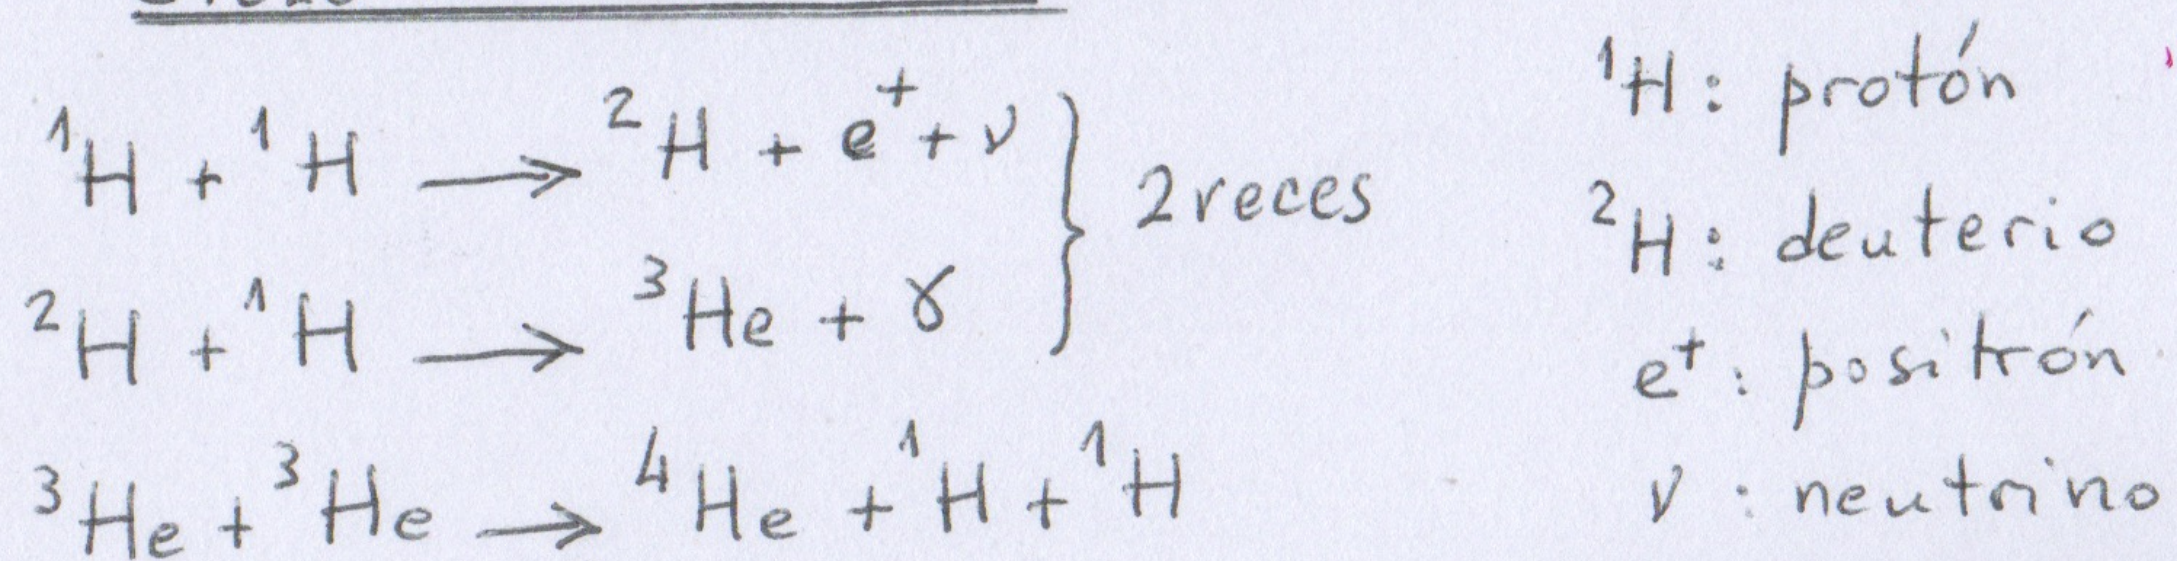 ¹H + ¹H → ²H + e⁺ + ν
²H + ¹H → ³He + γ
2 veces
³He + ³He → ⁴He + ¹H + ¹H
¹H: protón
²H: deuterio
e⁺: positrón
ν: neutrino